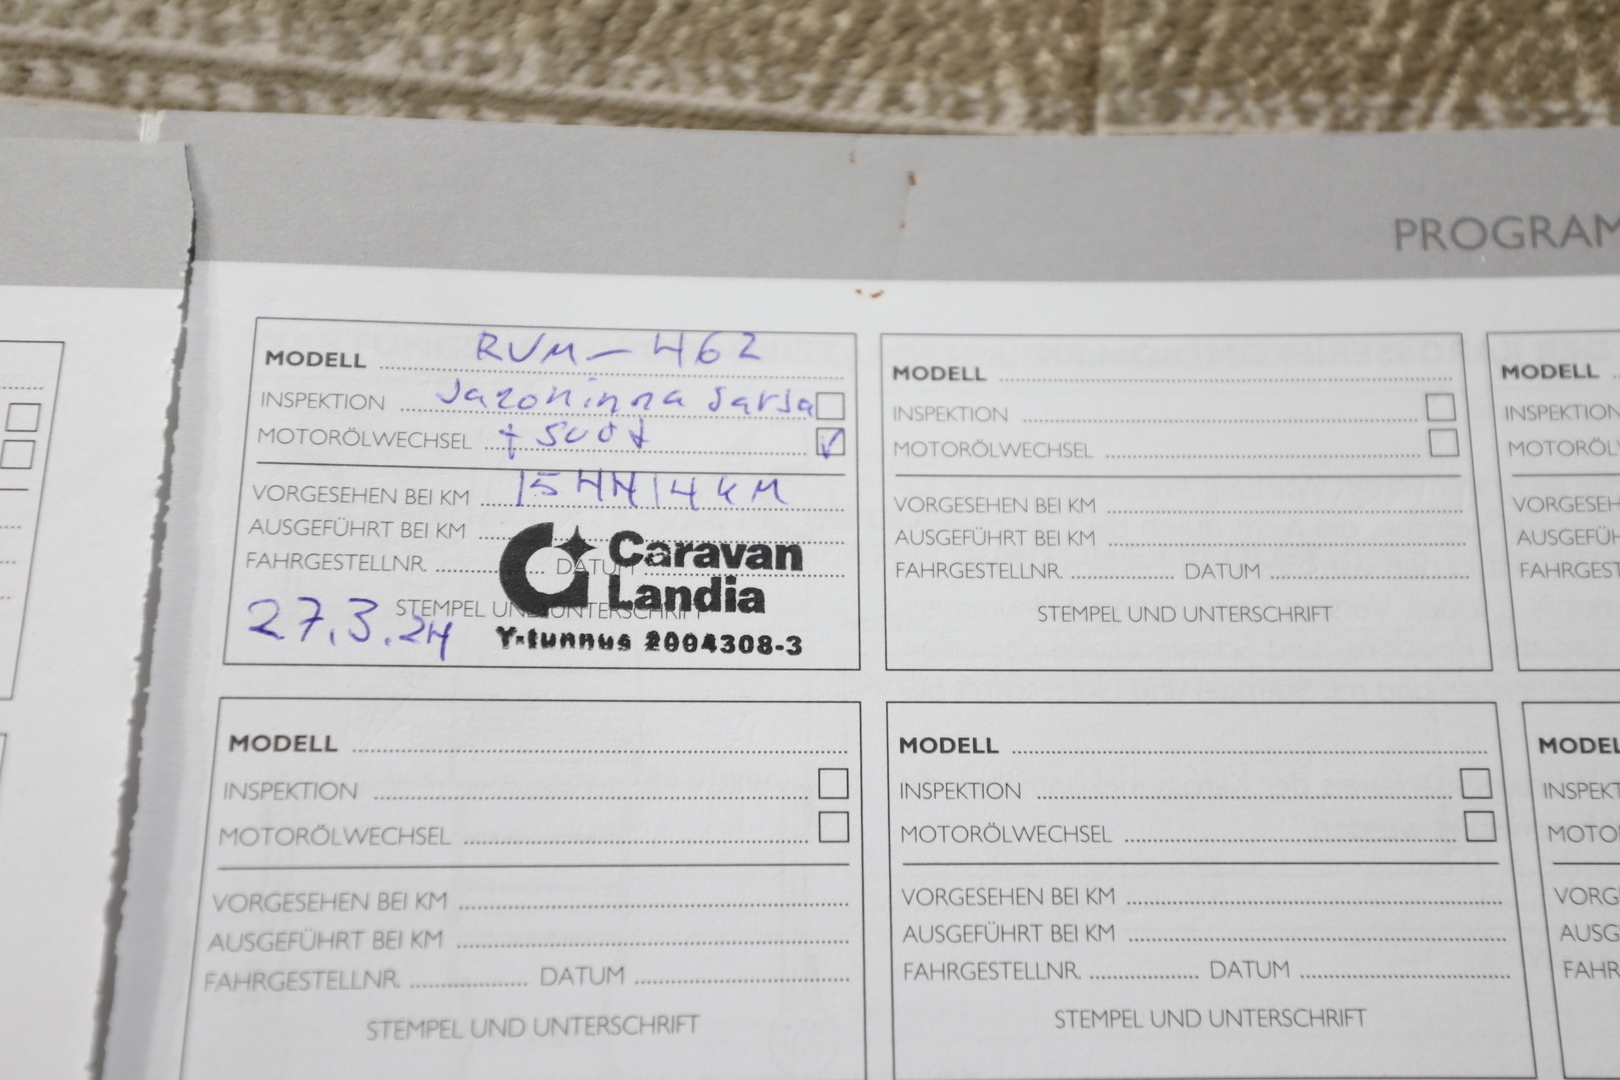 PROGRAM
MODELL RVM-462
INSPEKTION Jakohihna sarja
MOTORÖLWECHSEL + suod
VORGESEHEN BEI KM 154414 KM
AUSGEFÜHRT BEI KM
FAHRGESTELLNR. DATUM
STEMPEL UND UNTERSCHRIFT
27.3.24
Caravan
Landia
Y-tunnus 2004308-3
MODELL
INSPEKTION
MOTORÖLWECHSEL
VORGESEHEN BEI KM
AUSGEFÜHRT BEI KM
FAHRGESTELLNR. DATUM
STEMPEL UND UNTERSCHRIFT
MODELL
INSPEKTION
MOTORÖL
VORGESEH
AUSGEFÜH
FAHRGEST
MODELL
INSPEKTION
MOTORÖLWECHSEL
VORGESEHEN BEI KM
AUSGEFÜHRT BEI KM
FAHRGESTELLNR. DATUM
STEMPEL UND UNTERSCHRIFT
MODELL
INSPEKTION
MOTORÖLWECHSEL
VORGESEHEN BEI KM
AUSGEFÜHRT BEI KM
FAHRGESTELLNR. DATUM
STEMPEL UND UNTERSCHRIFT
MODEL
INSPEKT
MOTO
VORG
AUSG
FAHR